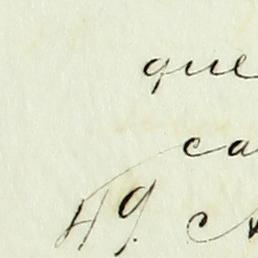 que
ca
49.